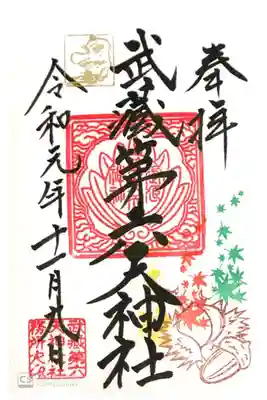 奉拝
武蔵第六天神社
令和元年十一月九日
武蔵第六
天神社
務所之印
CS